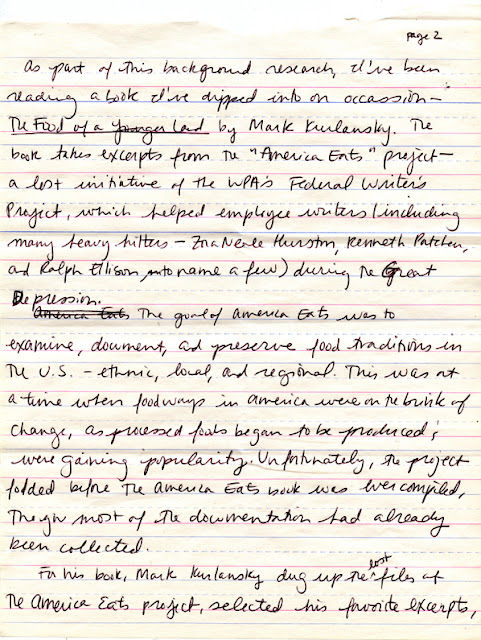 page 2
As part of this background research, I've been
reading a book I've dipped into on occassion–
The Food of a Younger Land by Mark Kurlansky. The
book takes excerpts from the "America Eats" project–
a lost initiative of the WPA's Federal Writer's
Project, which helped employee writers (including
many heavy hitters – Zora Neale Hurston, Kenneth Patchen,
and Ralph Ellison, to name a few) during the Great
Depression.
America Eats The goal of America Eats was to
examine, document, and preserve food traditions in
the U.S. – ethnic, local, and regional. This was at
a time when foodways in America were on the brink of
change, as processed foods began to be produced &
were gaining popularity. Unfortunately, the project
folded before the America Eats book was ever compiled,
though most of the documentation had already
been collected.
For his book, Mark Kurlansky dug up the lost files of
the America Eats project, selected his favorite excerpts,